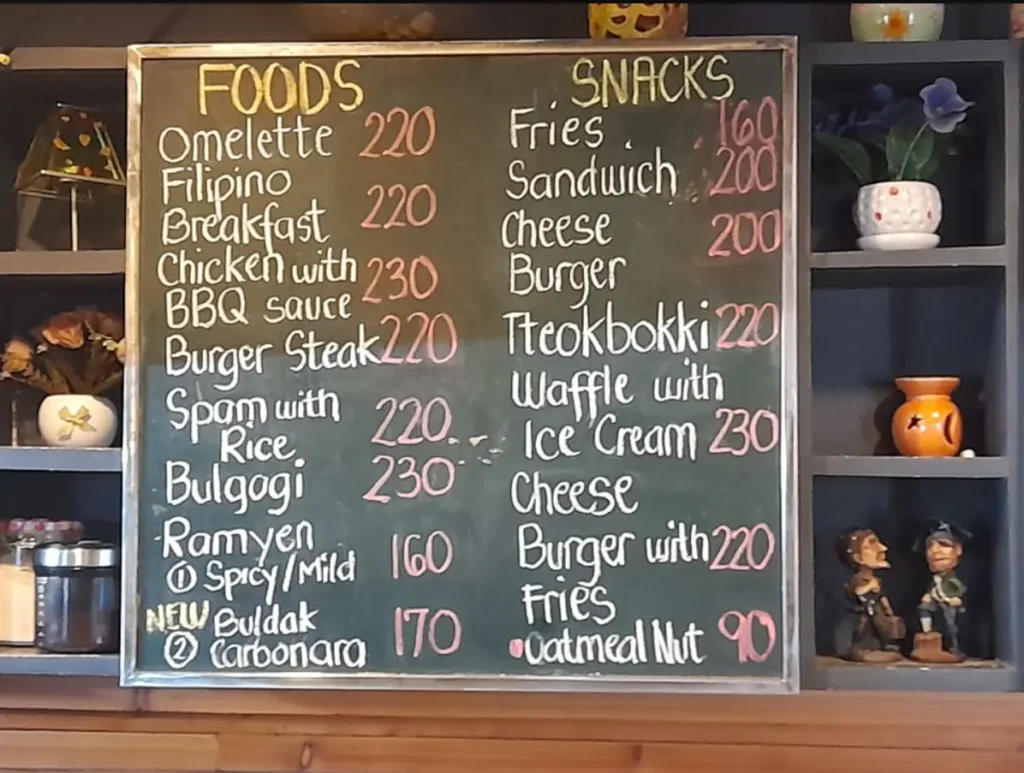 FOODS
Omelette 220
Filipino
Breakfast 220
Chicken with 230
BBQ sauce
Burger Steak 220
Spam with
Rice 220
Bulgogi 230
Ramyen
① Spicy/Mild 160
NEW Buldak
② Carbonara 170
SNACKS
Fries 160
Sandwich 200
Cheese 200
Burger
Tteokbokki 220
Waffle with
Ice Cream 230
Cheese
Burger with 220
Fries
Oatmeal Nut 90